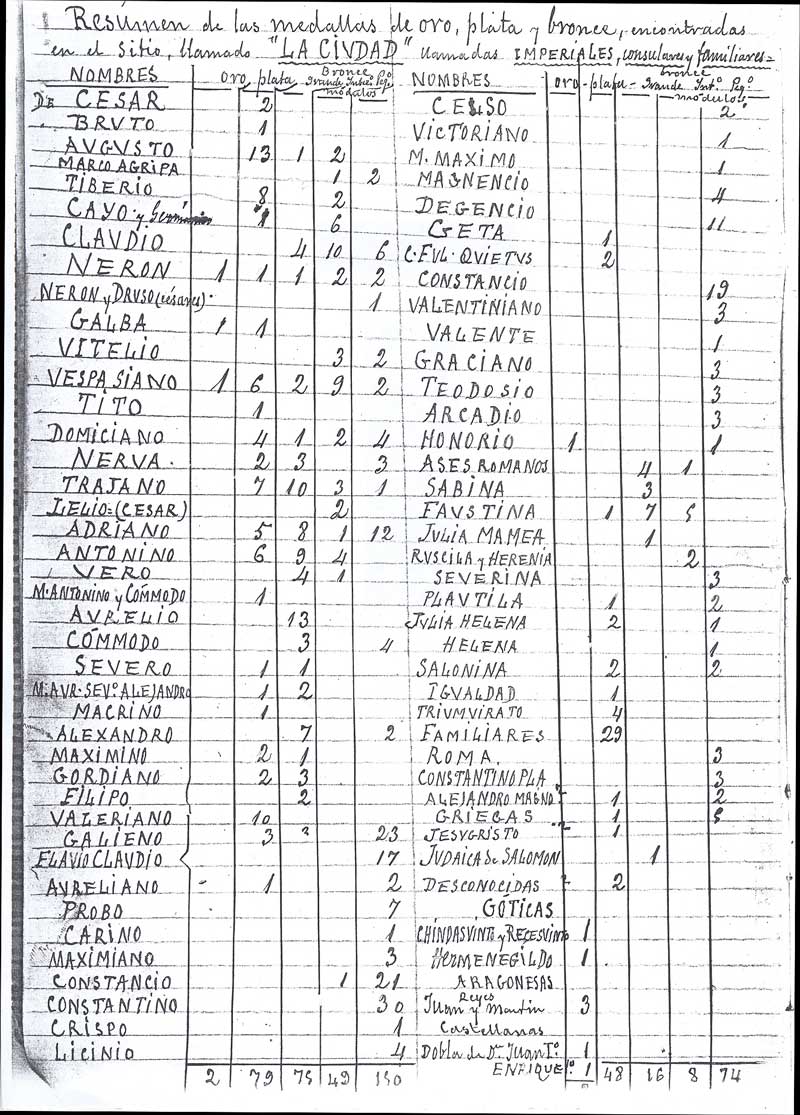 Resúmen de las medallas de oro, plata y bronce, encontradas
en el sitio, llamado "LA CIVDAD" llamadas IMPERIALES, consulares y familiares=
NOMBRES oro, plata, Bronce Grande Int.º Peq.º módulos NOMBRES oro - plata - bronce Grande Int.º Peq.º módulos
DE CESAR 2 CELSO 2
BRUTO 1 VICTORIANO 1
AUGUSTO 13 1 2 M. MAXIMO 1
MARCO AGRIPA 1 2 MAGNENCIO 4
TIBERIO 8 2 DEGENCIO 11
CAYO y 1 6 GETA 1
CLAVDIO 4 10 6 C. FUL. QVIETUS 2
NERON 1 1 1 2 2 CONSTANCIO 19
NERON y DRUSO (césares) 1 VALENTINIANO 3
GALBA 1 1 VALENTE 1
VITELIO 3 2 GRACIANO 3
VESPASIANO 1 6 2 9 2 TEODOSIO 3
TITO 1 ARCADIO 3
DOMICIANO 4 1 2 4 HONORIO 1 1
NERVA. 2 3 3 ASES ROMANOS 4 1
TRAJANO 7 10 3 1 SABINA 3
LELIO=(CESAR) 2 FAUSTINA 1 7 5
ADRIANO 5 8 1 12 JULIA MAMEA 1
ANTONINO 6 9 4 RVSCILA y HERENIA 2
VERO 4 1 SEVERINA 3
M. ANTONINO y CÓMMODO 1 PLAVTILA 1 2
AVRELIO 13 JVLIA HELENA 2 1
CÓMMODO 3 4 HELENA 1
SEVERO 1 1 SALONINA 2 2
M. AVR. SEV.º ALEJANDRO 1 2 IGVALDAD 1
MACRINO 1 TRIUMVIRATO 4
ALEXANDRO 7 2 FAMILIARES 29
MAXIMINO 2 1 ROMA. 3
GORDIANO 2 3 CONSTANTINOPLA 3
FILIPO 2 ALEJANDRO MAGNO 1 2
VALERIANO 10 GRIEGAS 1 5
GALIENO 3 3 23 JESVCRISTO 1
FLAVIO CLAVDIO 17 JVDAICA de SALOMON 1
AVRELIANO - 1 2 DESCONOCIDAS 2
PROBO 7 GÓTICAS
CARINO 1 CHINDASVINTO y RECESVINTO 1
MAXIMIANO 3 HERMENEGILDO 1
CONSTANCIO 1 21 ARAGONESAS
CONSTANTINO 30 Reyes Juan y Martin 3
CRISPO 1 Castellanas
LICINIO 4 Dobla de Dn. Juan I.º 1
ENRIQUE 1
2 79 75 49 150 48 16 8 74